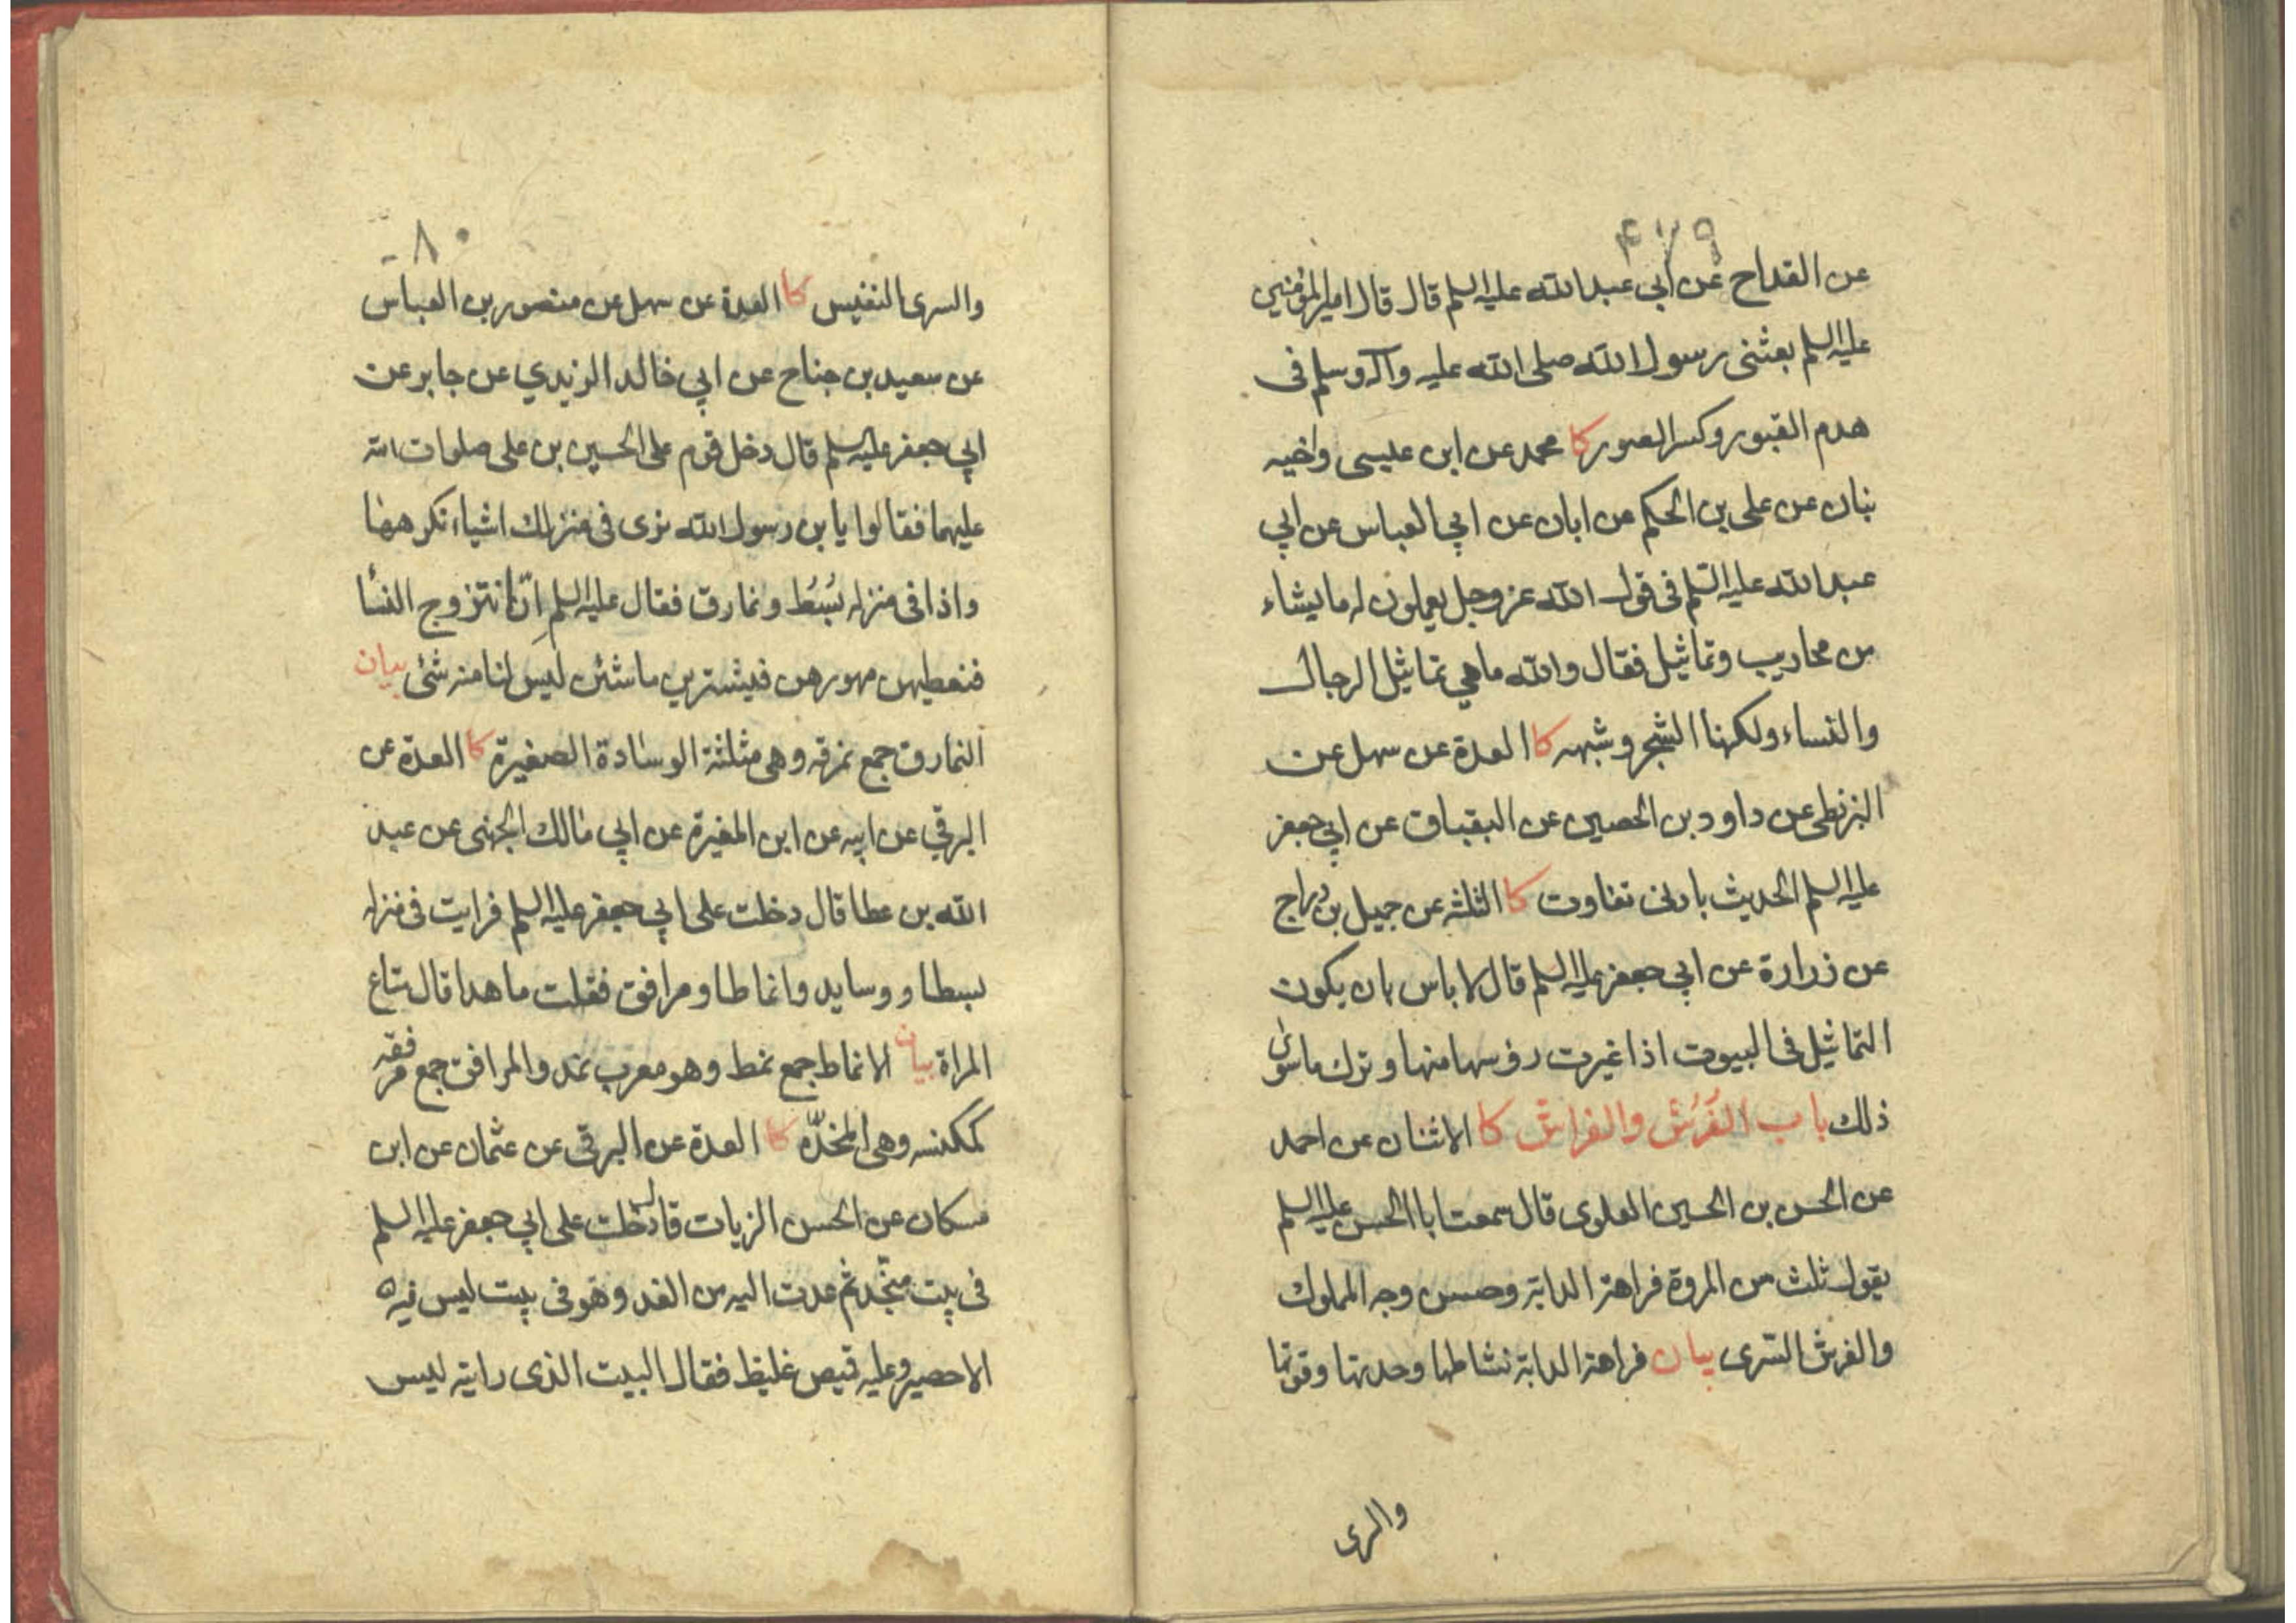 ۴۷۹
عن القداح عن ابي عبدالله عليه السلم قال قال امير المؤمنين
عليه السلم بعثنى رسول الله صلى الله عليه وآله وسلم فى
هدم القبور وكسر الصور كا محمد عن ابن عيسى واخيه
بنان عن على بن الحكم عن ابان عن ابي العباس عن ابي
عبدالله عليه السّلم فى قول الله عز وجل يعملون له ما يشاء
من محاريب وتماثيل فقال والله ما هي تماثيل الرجال
والنساء ولكنها الشجر وشبهه كا العدة عن سهل عن
البزنطى عن داود بن الحصين عن البقباق عن ابي جعفر
عليه السلم الحديث بادنى تفاوت كا الثلثه عن جميل بن دراج
عن زرارة عن ابي جعفر عليه السلم قال لا باس بان يكون
التماثيل فى البيوت اذا غيرت رؤسها منها و ترك ما سوى
ذلك باب الفُرُش والفراش كا الاثنان عن احمد
عن الحسن بن الحسين العلوى قال سمعت ابا الحسن عليه السلم
يقول ثلث من المروة فراهة الدابّة وحسن وجه المملوك
والفرش السّرى بيان فراهة الدابّة نشاطها وحدتها وقوتها
والسرى
۸۰
والسرى النفيس كا العدة عن سهل عن منصور بن العباس
عن سعيد بن جناح عن ابي خالد الزيدي عن جابر عن
ابي جعفر عليه السلم قال دخل قوم على الحسين بن على صلوات الله
عليهما فقالوا يا بن رسول الله نرى فى منزلك اشياء نكرهها
واذا فى منزله بُسُط ونمارق فقال عليه السلم اِنّا نتزوج النسا
فنعطيهن مهورهن فيشترين ما شئن ليس لنا منه شئ بيان
النمارق جمع نمرقه وهى مثلثة الوسادة الصغيرة كا العدة عن
البرقي عن ابيه عن ابن المغيرة عن ابي مالك الجهنى عن عبد
الله بن عطا قال دخلت على ابي جعفر عليه السلم فرايت فى منزله
بسطا و وسايد وانماطا ومرافق فقلت ما هذا قال متاع
المراة بيان الانماط جمع نمط وهو معرب نمد والمرافق جمع مرفقه
كمكنسه وهى المخدّه كا العدة عن البرقى عن عثمان عن ابن
مسكان عن الحسن الزيات قال دخلت على ابي جعفر عليه السلم
فى بيت منجّد ثم عدت اليه من الغد وهو فى بيت ليس فيه
الا حصير وعليه قميص غليظ فقال البيت الذى رايته ليس